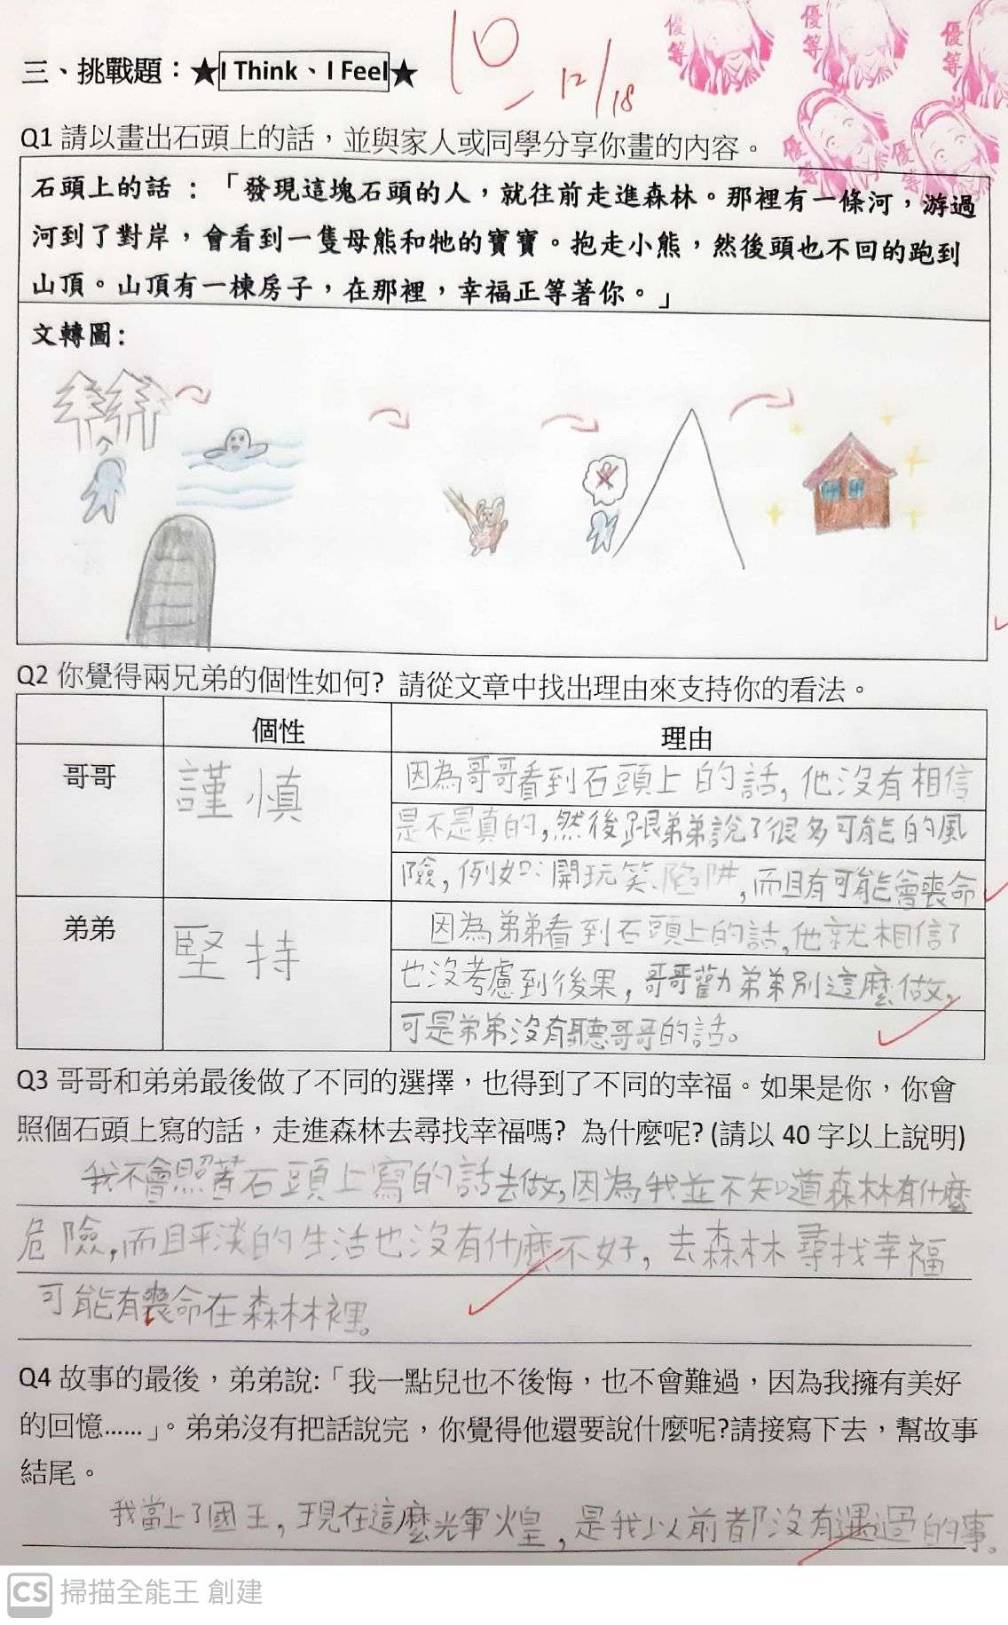 10
12/18
優等
優等
優等
優等
優等
三、挑戰題：★I Think、I Feel★
Q1 請以畫出石頭上的話，並與家人或同學分享你畫的內容。
石頭上的話：「發現這塊石頭的人，就往前走進森林。那裡有一條河，游過
河到了對岸，會看到一隻母熊和牠的寶寶。抱走小熊，然後頭也不回的跑到
山頂。山頂有一棟房子，在那裡，幸福正等著你。」
文轉圖：
Q2 你覺得兩兄弟的個性如何? 請從文章中找出理由來支持你的看法。
個性 理由
哥哥 謹慎 因為哥哥看到石頭上的話，他沒有相信
是不是真的，然後跟弟弟說了很多可能的風
險，例如：開玩笑、陷阱，而且有可能會喪命
弟弟 堅持 因為弟弟看到石頭上的話，他就相信了
也沒考慮到後果，哥哥勸弟弟別這麼做，
可是弟弟沒有聽哥哥的話。
Q3 哥哥和弟弟最後做了不同的選擇，也得到了不同的幸福。如果是你，你會
照個石頭上寫的話，走進森林去尋找幸福嗎? 為什麼呢? (請以 40 字以上說明)
我不會照著石頭上寫的話去做，因為我並不知道森林有什麼
危險，而且平淡的生活也沒有什麼不好，去森林尋找幸福
可能有喪命在森林裡。
Q4 故事的最後，弟弟說:「我一點兒也不後悔，也不會難過，因為我擁有美好
的回憶……」。弟弟沒有把話說完，你覺得他還要說什麼呢?請接寫下去，幫故事
結尾。
我當上了國王，現在這麼光輝煌，是我以前都沒有遇過的事。
CS 掃描全能王 創建